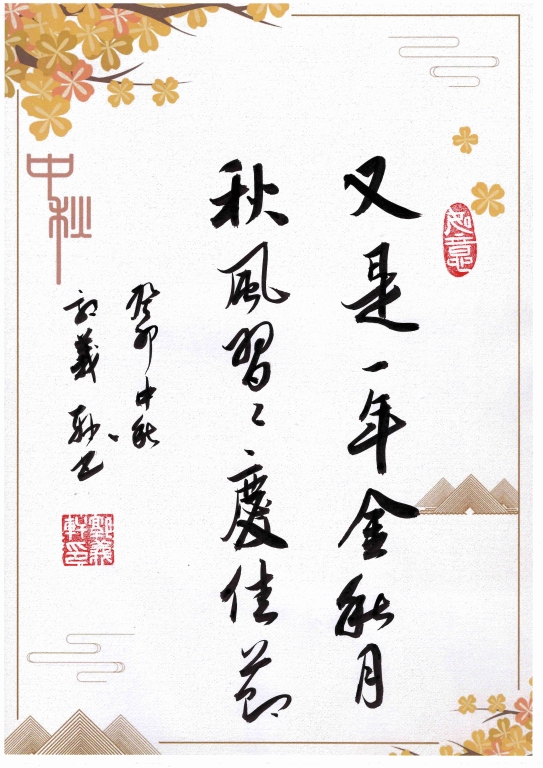 又是一年金秋月
如意
秋風習〻慶佳節
癸卯中秋
義軒书
中秋